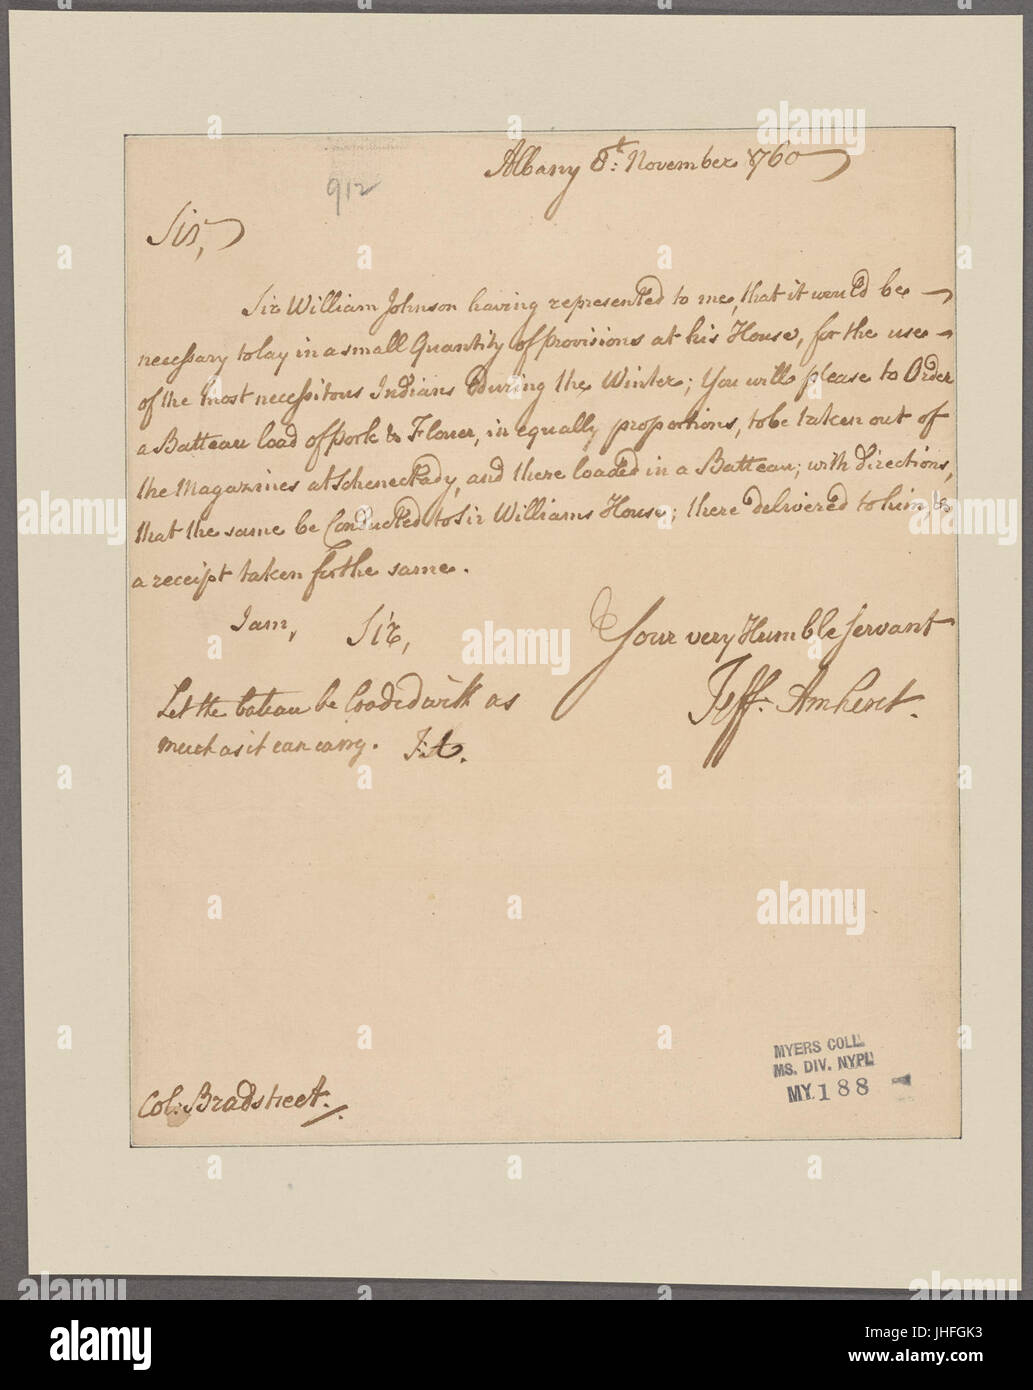 Albany 8th: November 1760
912
Sir,
Sir William Johnson having represented to me, that it would be
necessary to lay in a small Quantity of provisions at his House, for the use
of the most necessitous Indians during the Winter; You will please to Order
a Batteau load of pork & Flower, in equally proportions, to be taken out of
the Magazines at Schenectady, and there loaded in a Batteau; with directions,
that the same be Conducted to Sir Williams House; there delivered to him, &
a receipt taken for the same.
I am, Sir,
Your very Humble Servant
Jeff: Amherst.
Let the bateau be loaded with as
much as it can carry. J:A.
MYERS COLL.
MS. DIV. NYPL
MY. 188
Col: Bradstreet.
alamy stock photo
JHFGK3
www.alamy.com